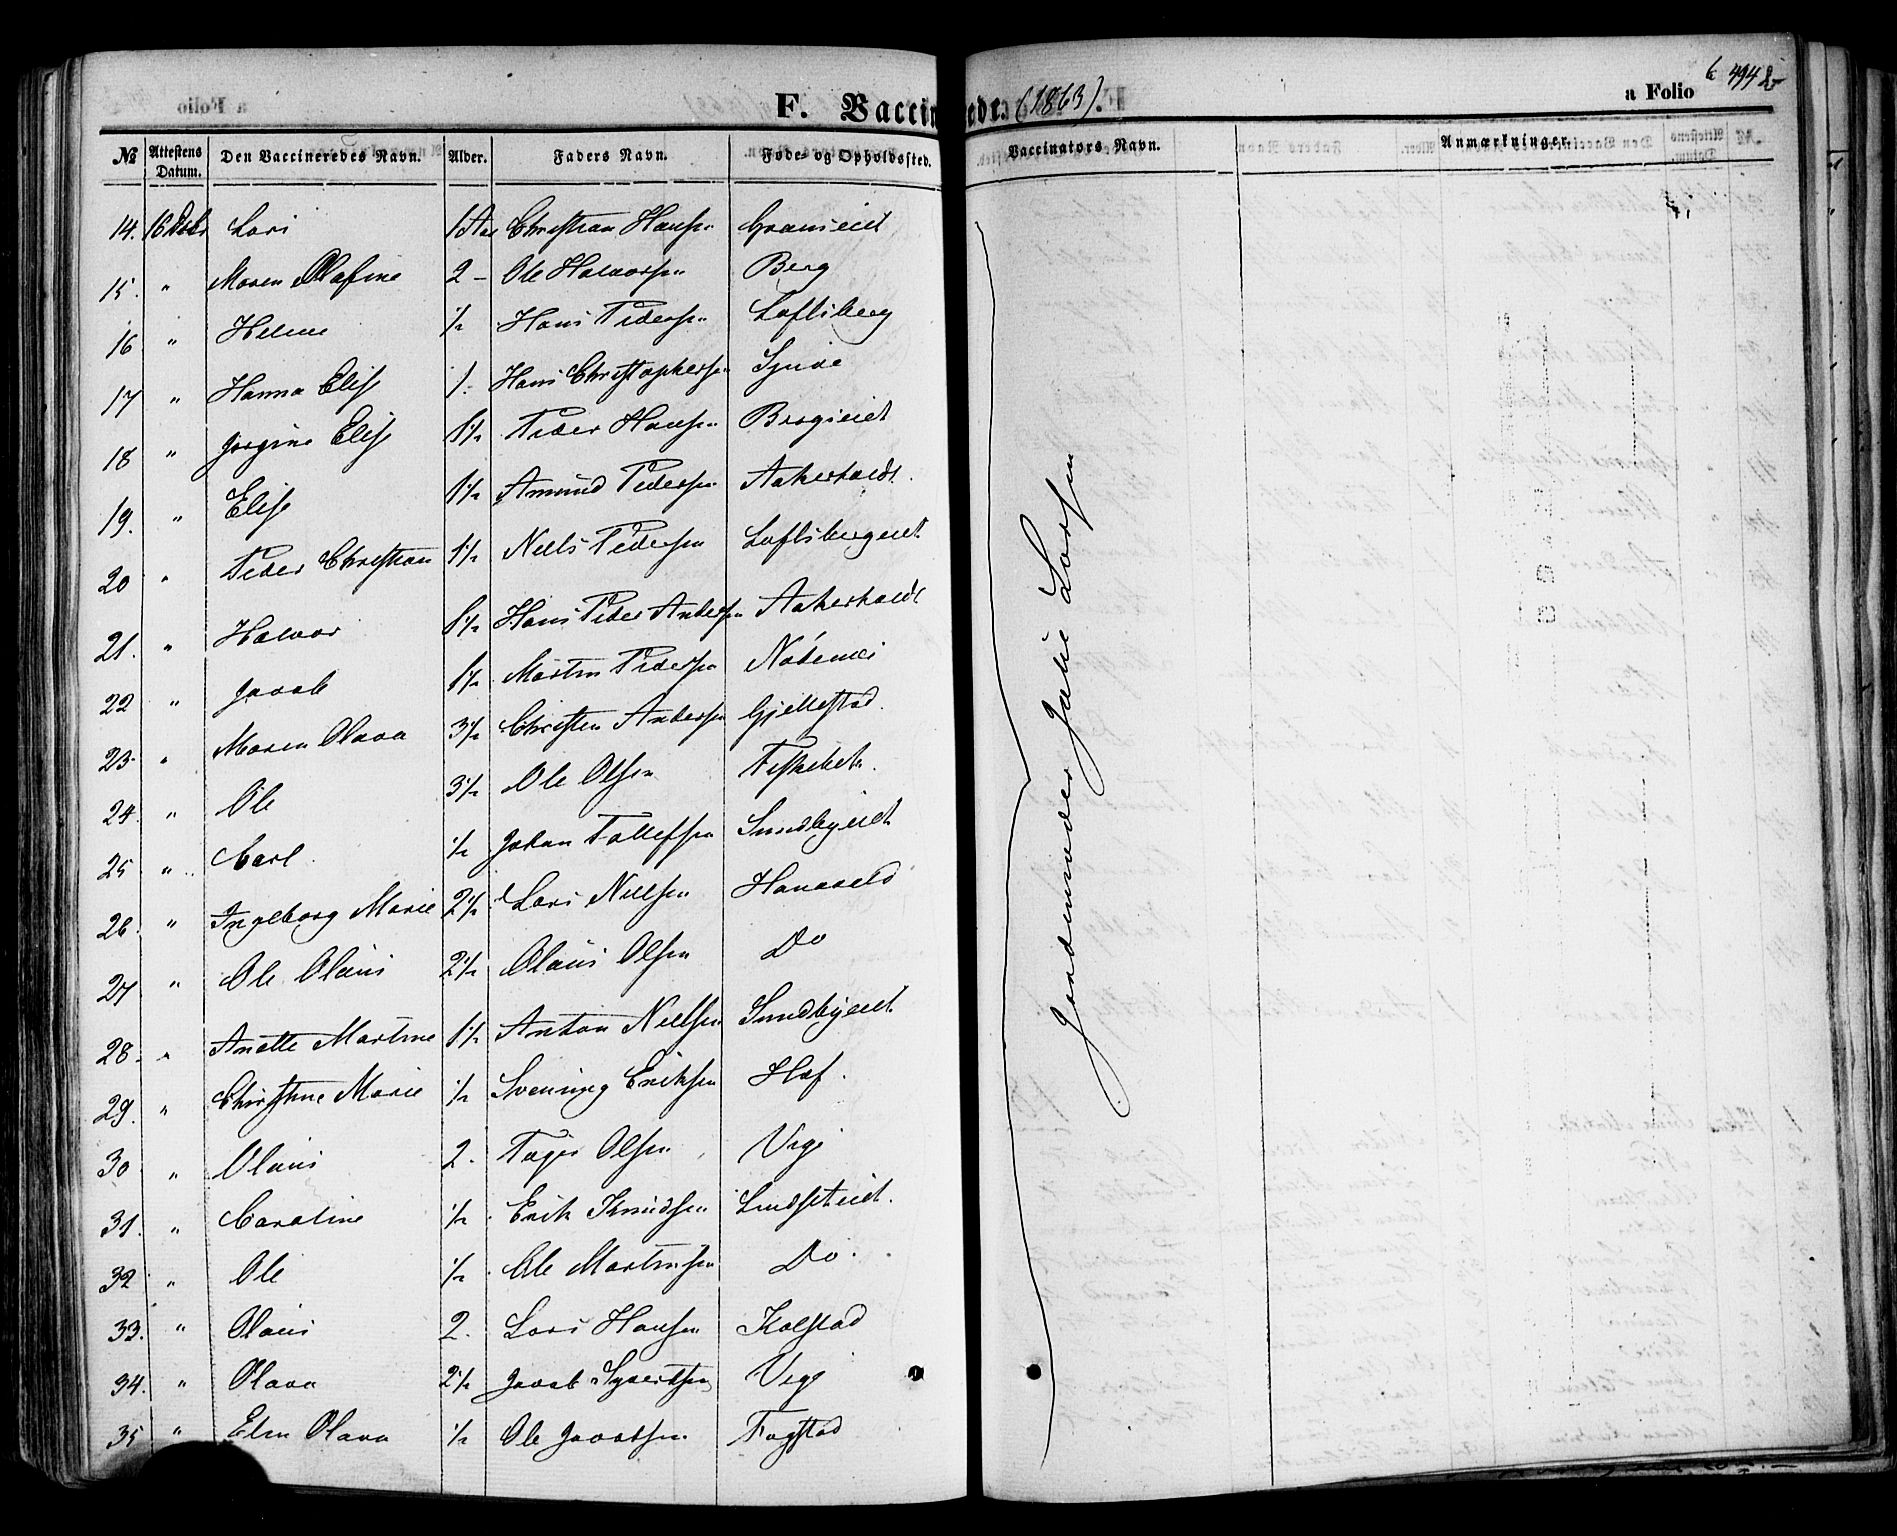 F. Vaccinerede. (1863).
a Folio 494
No Attestens Datum. Den Vaccineredes Navn. Alder. Faders Navn. Føde- og Opholdssted. Vaccinators Navn. Anmærkninger.
14. 16 Lars Christian Hansen
15. " Maren Olafine 2 - Ole Halvorsen Berg
16 " Helene ½ Hans Pedersen Loftsberg
17 " Hanna Elise 1. Hans Christophersen
18 " Jørgine Elise 1½ Peder Hansen
19. " Elise 1½ Amund Pedersen Aakerholdt.
20 " Peder Christian 1½ Niels Pedersen Loftsbergeiet
21. " Halvor 1½ Hans Peder Andersen Aakerholdt
22 " Jacob 1½ Martin Pedersen
23. " Maren Olava 3½ Christen Andersen Gjellestad.
24. " Ole 3½ Ole Olsen Fiskebek.
25 " Carl. ½ Johan Tollefsen Sundbyeiet
26. " Ingeborg Marie 2½ Lars Nielsen Hanevold
27 " Ole Olaus 2½ Olaus Olsen Do
28. " Anette Martine 1½ Anton Nielsen Sundbyeiet.
29. " Christine Marie ½ Svening Eriksen Haf.
30. " Olaus 2. Olsen
31. " Caroline ½ Erik Knudsen
32 " Ole ½ Ole Martinsen Do.
33. " Olaus 2. Lars Hansen Kolstad
34. " Olava 2½ Jacob Syvertsen
35 " Elen Olava ½ Ole Jacobsen Fogstad
Jordemoder Larsen